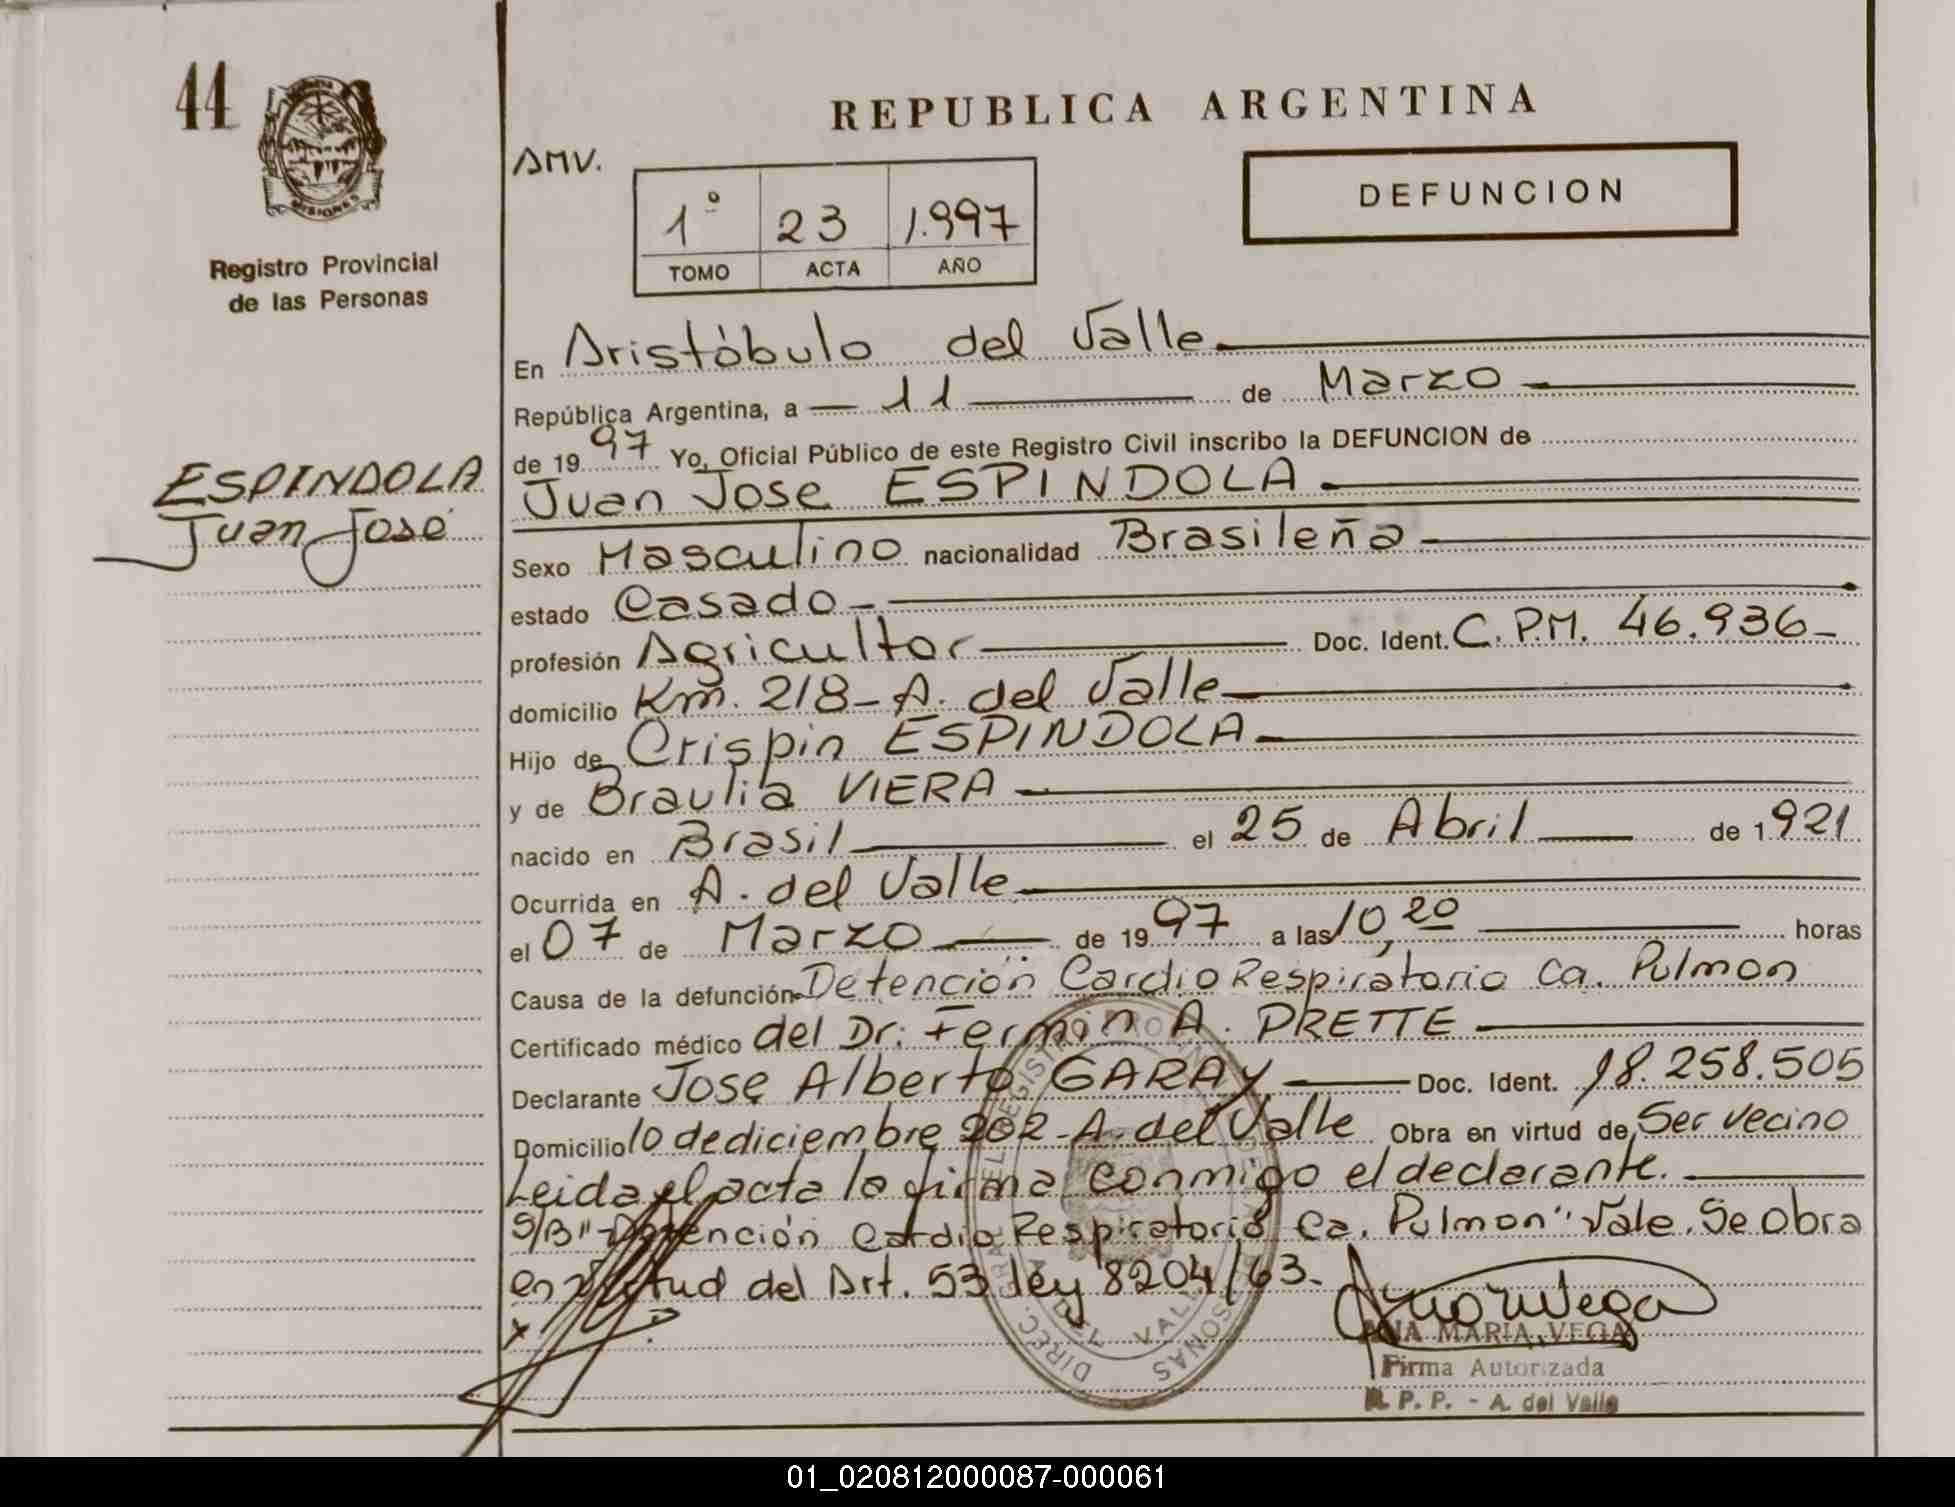 44
MISIONES
Registro Provincial
de las Personas
ESPINDOLA
Juan José
REPUBLICA ARGENTINA
AMV.
1º 23 1.997
TOMO ACTA AÑO
DEFUNCION
En Aristóbulo del Valle
República Argentina, a — 11 — de Marzo
de 19 97 Yo, Oficial Público de este Registro Civil inscribo la DEFUNCION de
Juan Jose ESPINDOLA
Sexo Masculino nacionalidad Brasileña
estado Casado
profesión Agricultor Doc. Ident. C.P.M. 46.936
domicilio Km. 218 - A. del Valle
Hijo de Crispin ESPINDOLA
y de Braulia VIERA
nacido en Brasil el 25 de Abril de 1921
Ocurrida en A. del Valle
el 07 de Marzo de 1997 a las 10,20 horas
Causa de la defunción Detención Cardio Respiratorio Ca. Pulmon
Certificado médico del Dr. Fermin A. PRETTE
Declarante Jose Alberto GARAY Doc. Ident. 18.258.505
Domicilio 10 de diciembre 202 - A. del Valle Obra en virtud de Ser vecino
Leida el acta la firma conmigo el declarante.
S/B "Detención Cardio Respiratorio Ca. Pulmon" Vale. Se Obra
en virtud del Art. 53 ley 8204/63-
x
ANA MARIA VEGA
Firma Autorizada
R. P. P. - A. del Valle
01_020812000087-000061